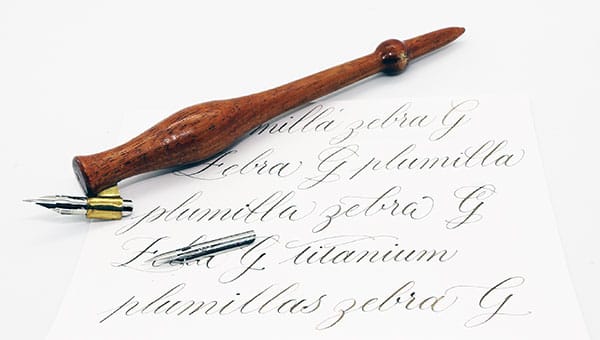 plumilla zebra G
Zebra G plumilla
plumilla zebra G
Zebra G titanium
plumillas zebra G